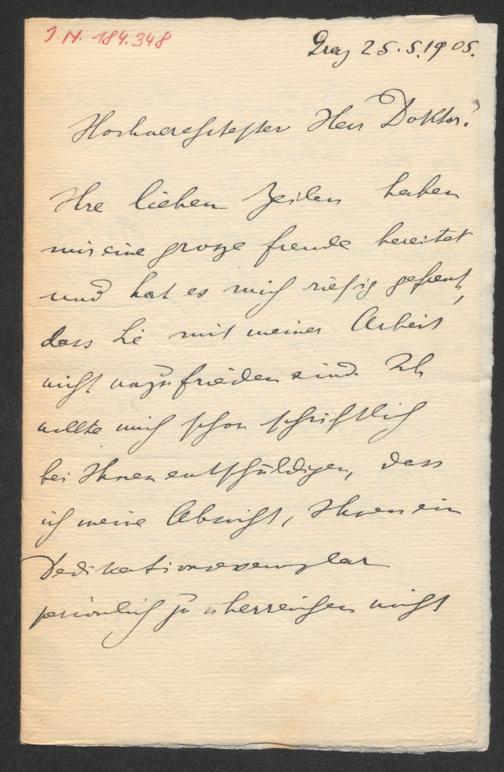 I.N. 184.348
Graz 25.5.1905.
Hochverehrtester Herr Doktor!
Ihre lieben Zeilen haben
mir eine grosze Freude bereitet
und hat es mich riesig gefreut,
dass Sie mit meiner Arbeit
nicht unzufrieden sind. Ich
wollte mich schon schriftlich
bei Ihnen entschüldigen, dass
ich meine Absicht, Ihnen ein
Dedikationsexemplar
persönlich zu überreichen nicht